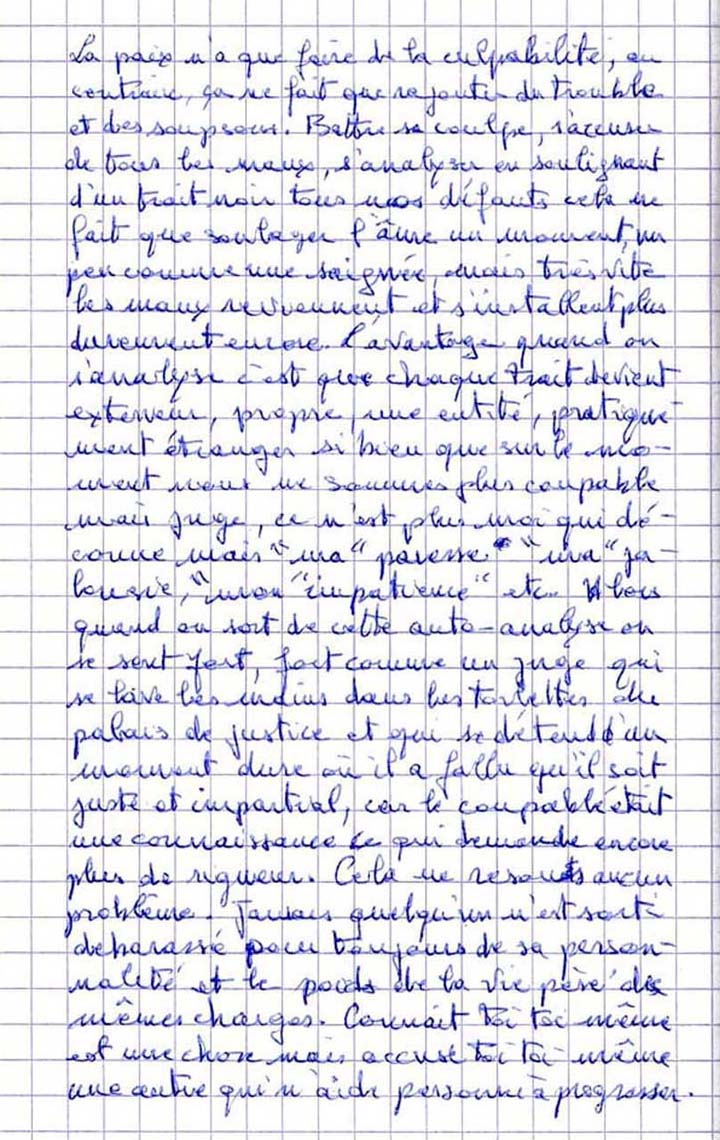 La paix n'a que faire de la culpabilité, au
contraire, ça ne fait que rajouter du trouble
et des soupçons. Battre sa coulpe, s'accuser
de tous les maux, s'analyser en soulignant
d'un trait noir tous nos défauts cela ne
fait que soulager l'âme un moment, un
peu comme une saignée, mais très vite
les maux reviennent et s'installent plus
durement encore. L'avantage quand on
s'analyse c'est que chaque trait devient
extérieur, propre, une entité, pratique-
ment étranger si bien que sur le mo-
ment nous ne sommes plus coupable
mais juge, ce n'est plus moi qui dé-
conne mais "ma" paresse "ma" ja-
lousie, "mon" impatience" etc... Alors
quand on sort de cette auto-analyse on
se sent fort, fort comme un juge qui
se lave les mains dans les toilettes du
palais de justice et qui se détend d'un
moment dure où il a fallu qu'il soit
juste et impartial, car le coupable était
une connaissance ce qui demande encore
plus de rigueur. Cela ne resouds aucun
problème. Jamais quelqu'un n'est sorti
debarassé pour toujours de sa person-
nalité et le poids de la vie pèse des
mêmes charges. Connait toi toi même
est une chose mais accuse toi toi-même
une autre qui n'aide personne à progresser.